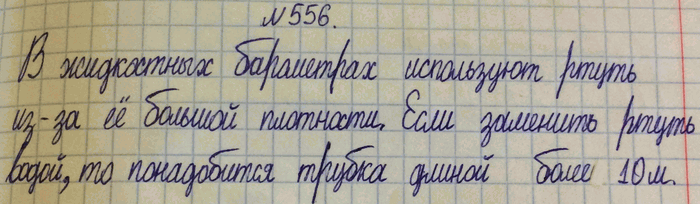 №556.
В жидкостных барометрах используют ртуть
из-за её большой плотности. Если заменить ртуть
водой, то понадобится трубка длиной более 10м.